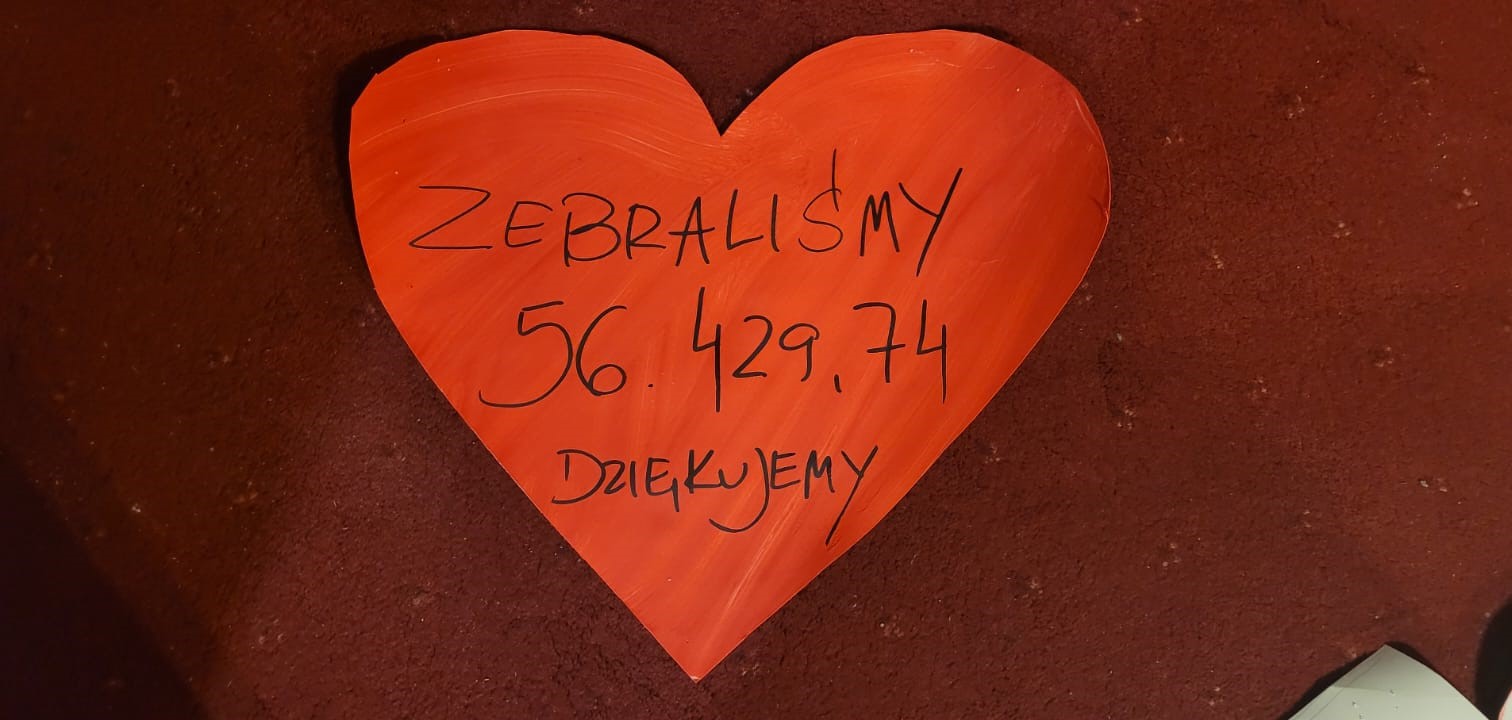 ZEBRALIŚMY
56.429,74
DZIĘKUJEMY